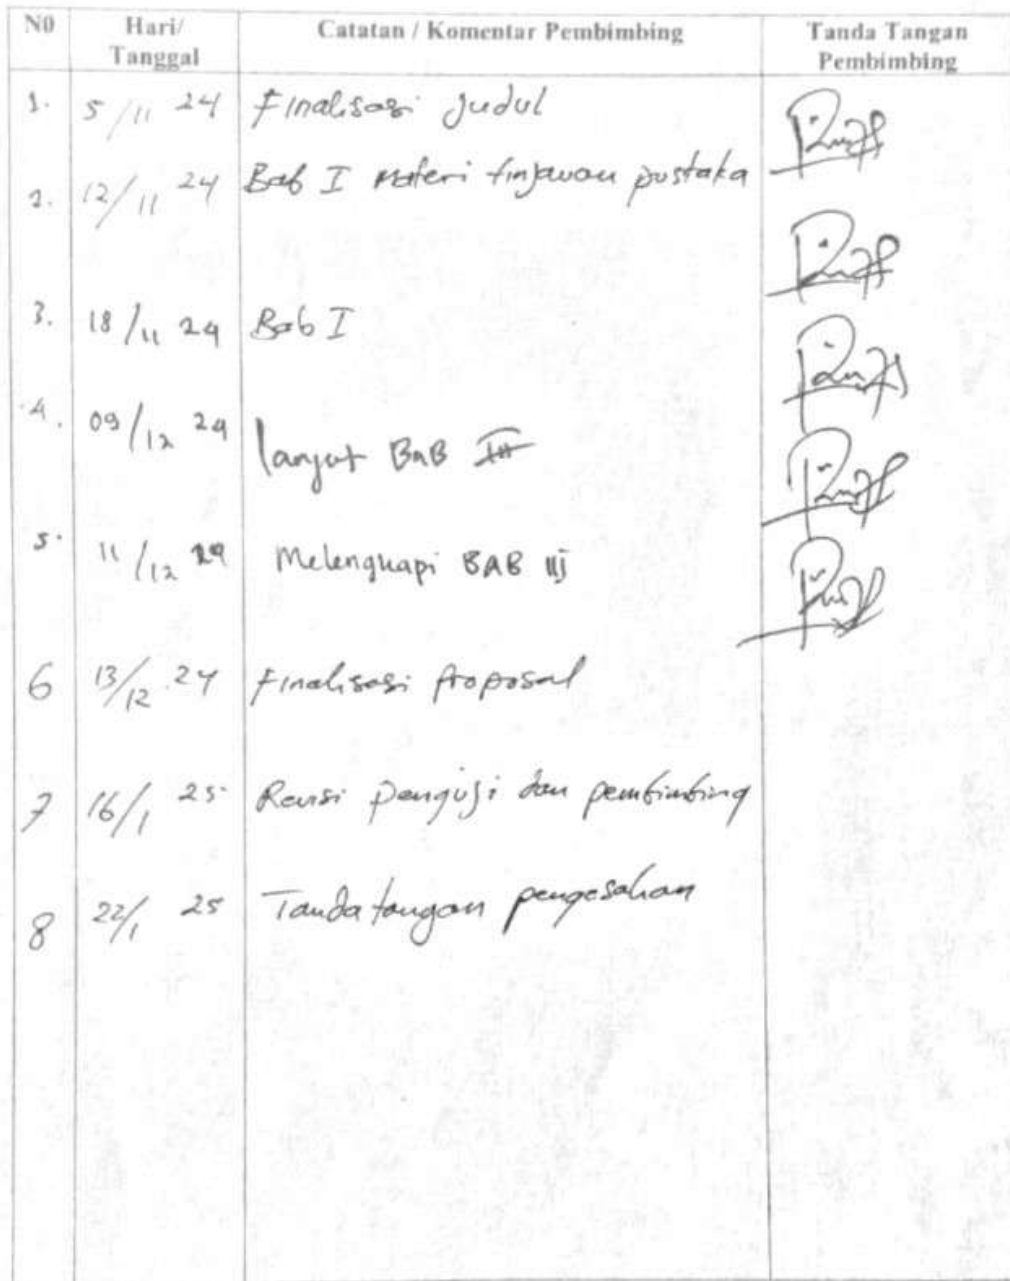 N0 Hari/ Tanggal Catatan / Komentar Pembimbing Tanda Tangan Pembimbing
1. 5/11 24 Finalisasi Judul
2. 12/11 24 Bab I Materi tinjauan pustaka
3. 18/11 24 Bab I
4. 09/12 24 lanjut BAB III
5. 11/12 24 Melengkapi BAB III
6 13/12 24 Finalisasi Proposal
7 16/1 25 Revisi penguji dan pembimbing
8 22/1 25 Tanda tangan pengesahan